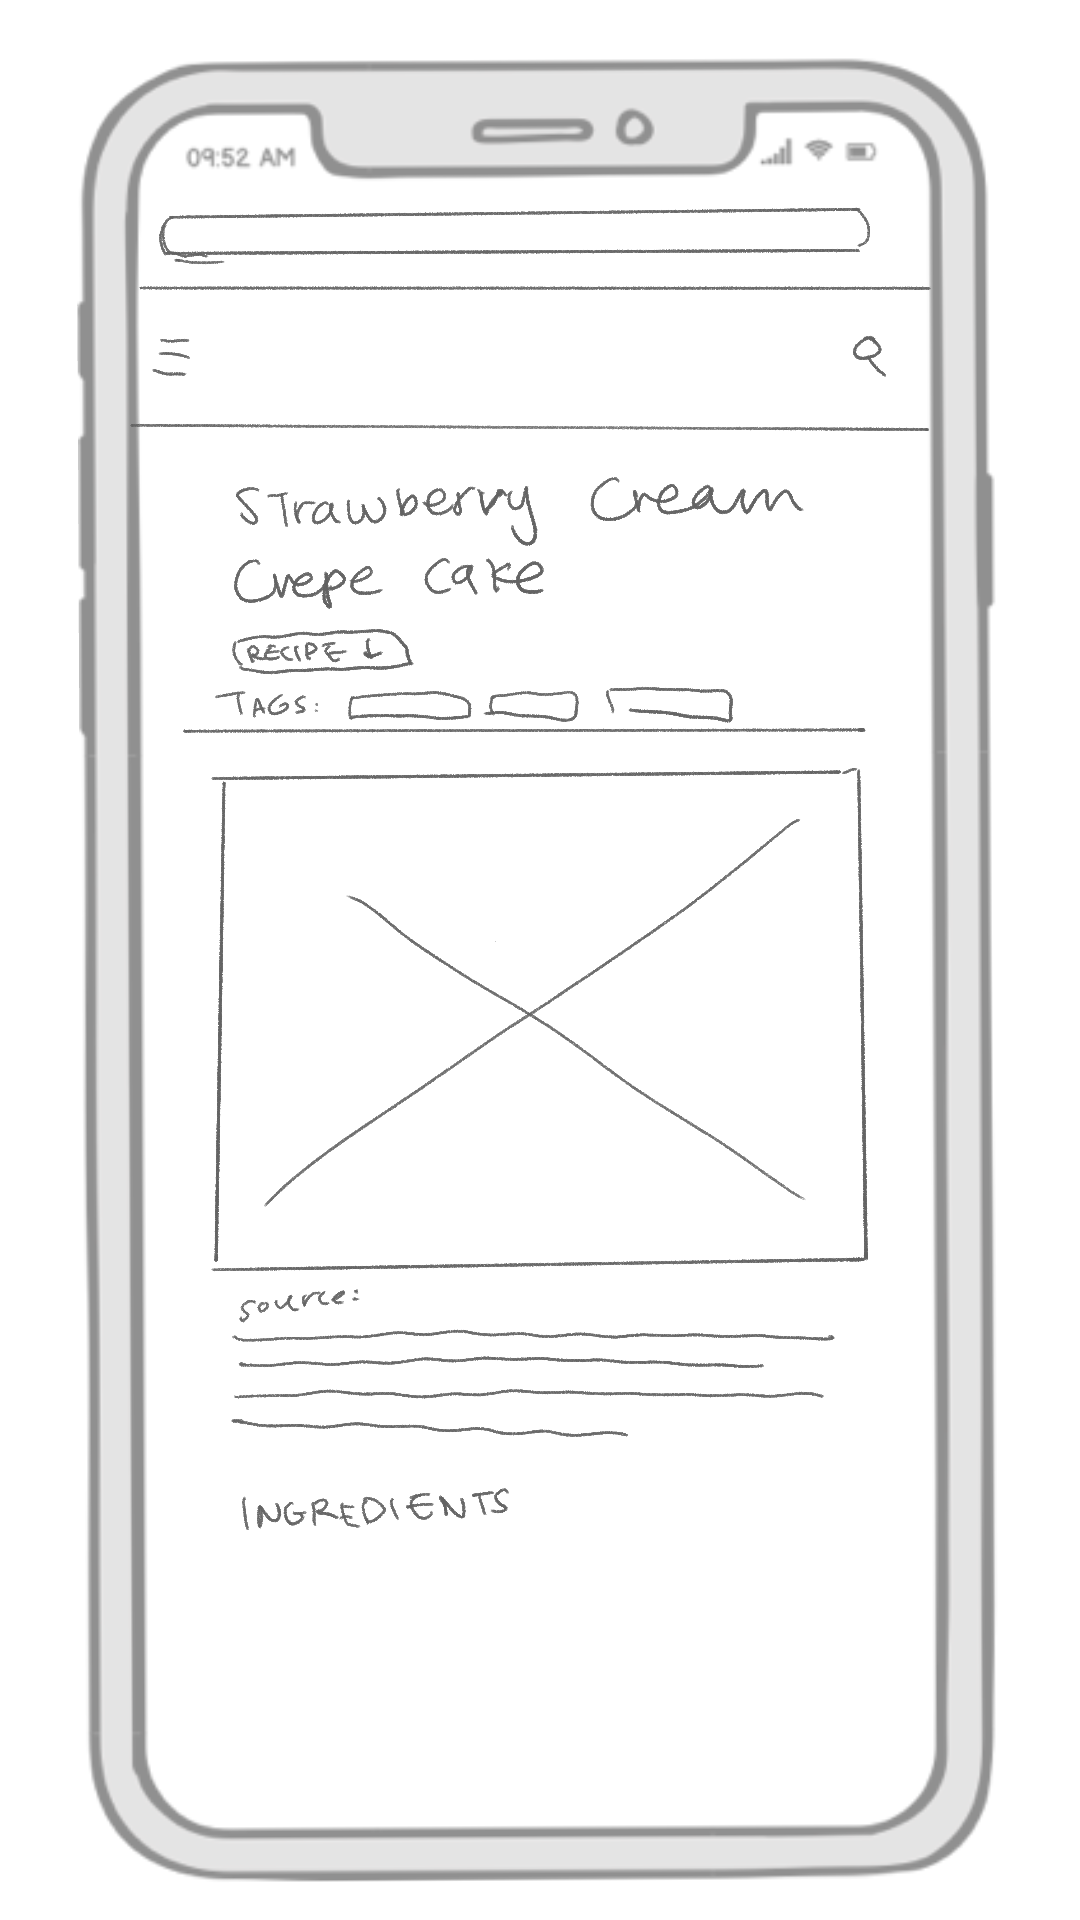 09:52 AM
Strawberry Cream
Crepe Cake
RECIPE ↓
TAGS:
source:
INGREDIENTS